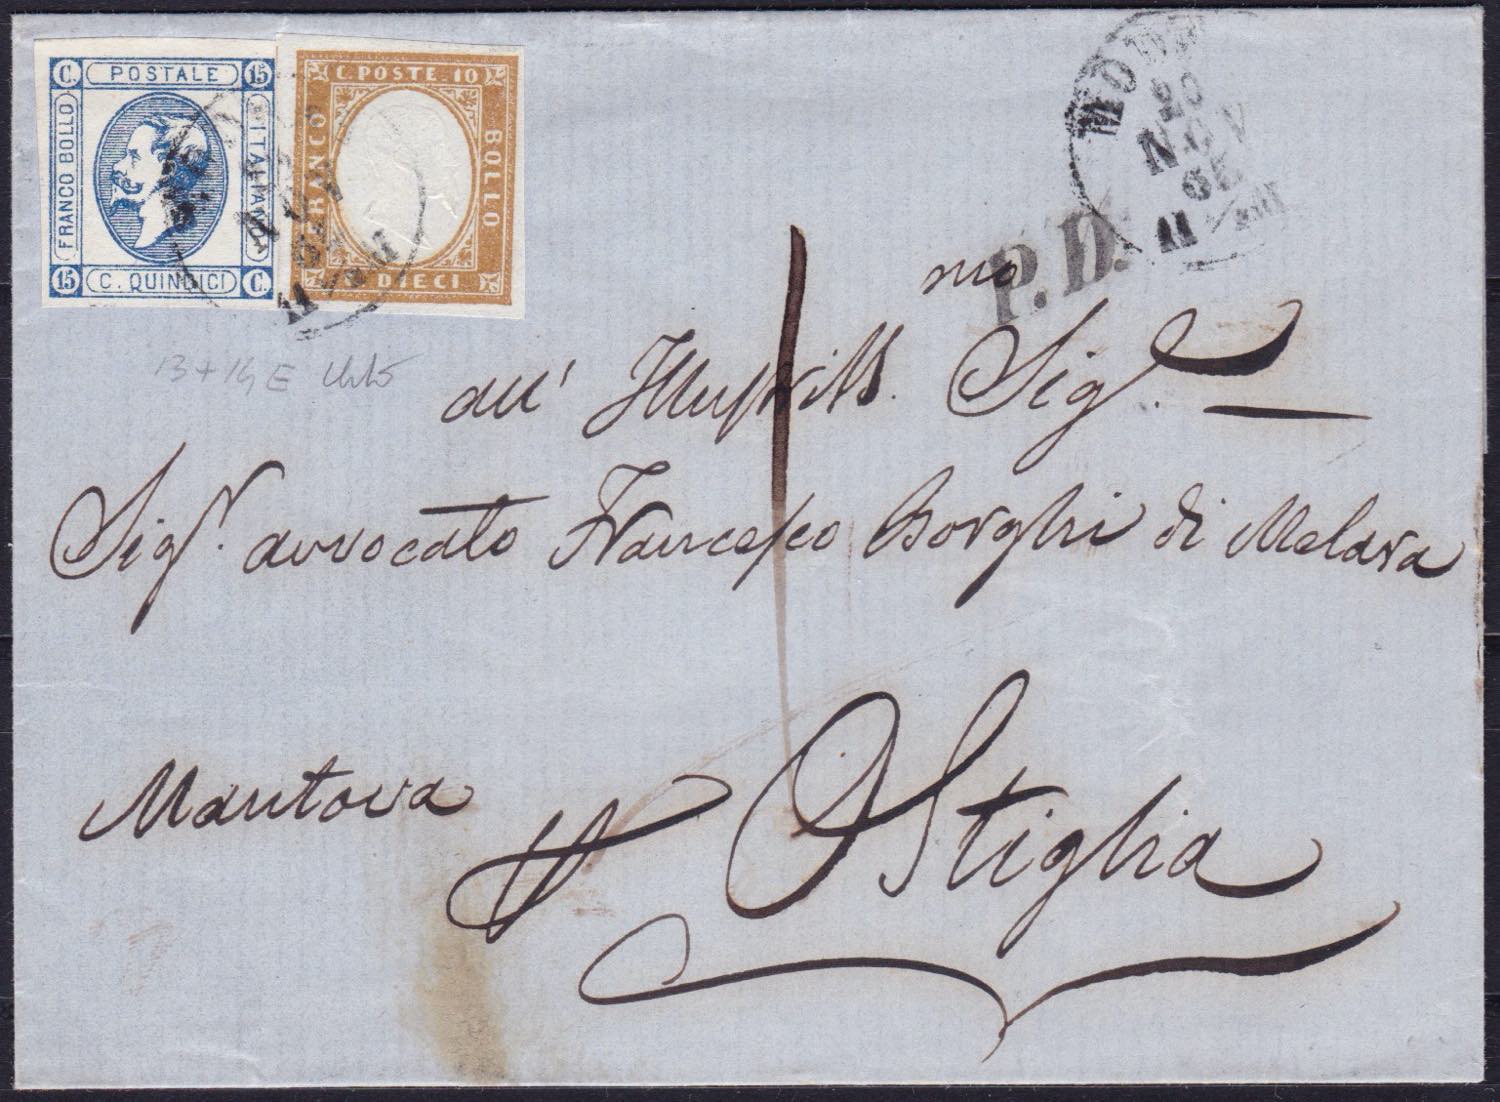 C. POSTALE 15
FRANCO BOLLO
ITALIANO
15 C. QUINDICI C.
C. POSTE 10
FRANCO
BOLLO
DIECI
20
NOV
65
11
P.D.
mo
all' Illustriss. Sig.
Sigr. avvocato Francesco Borghi di Melara
Mantova
Ostiglia
13 + 14 E